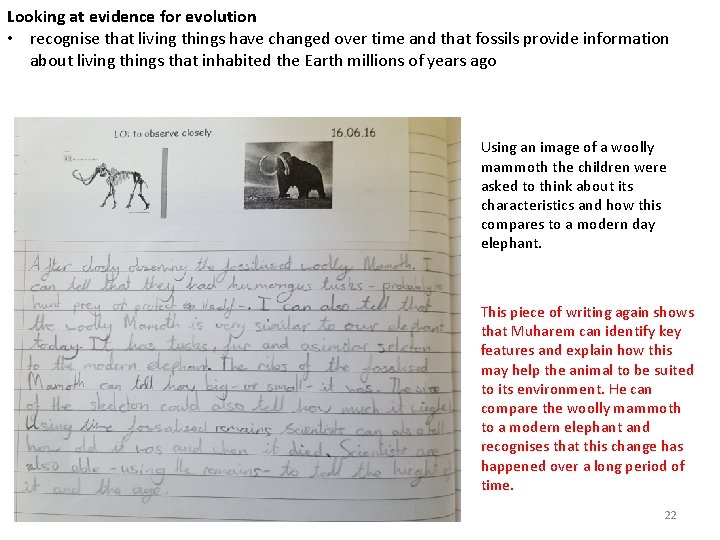 Looking at evidence for evolution
• recognise that living things have changed over time and that fossils provide information
about living things that inhabited the Earth millions of years ago
LO: to observe closely
16.06.16
Using an image of a woolly
mammoth the children were
asked to think about its
characteristics and how this
compares to a modern day
elephant.
After closly observing the fossilised woolly Mamoth. I
can tell that they had humongus tusks - probably to
hunt prey or protect itself -. I can also tell that
the woolly Mamoth is very similar to our elephant
today. It has tucks, fur and a similar skeleton
to the modern elephant. The ribs of the fosalised
Mamoth can tell how big - or small - it was. The size
of the skeleton could also tell how much it
Using the fossalised remains Scientists can also tell
how old it was and when it died. Scientists are
also able - using the remains - to tell the
it and the age.
This piece of writing again shows
that Muharem can identify key
features and explain how this
may help the animal to be suited
to its environment. He can
compare the woolly mammoth
to a modern elephant and
recognises that this change has
happened over a long period of
time.
22